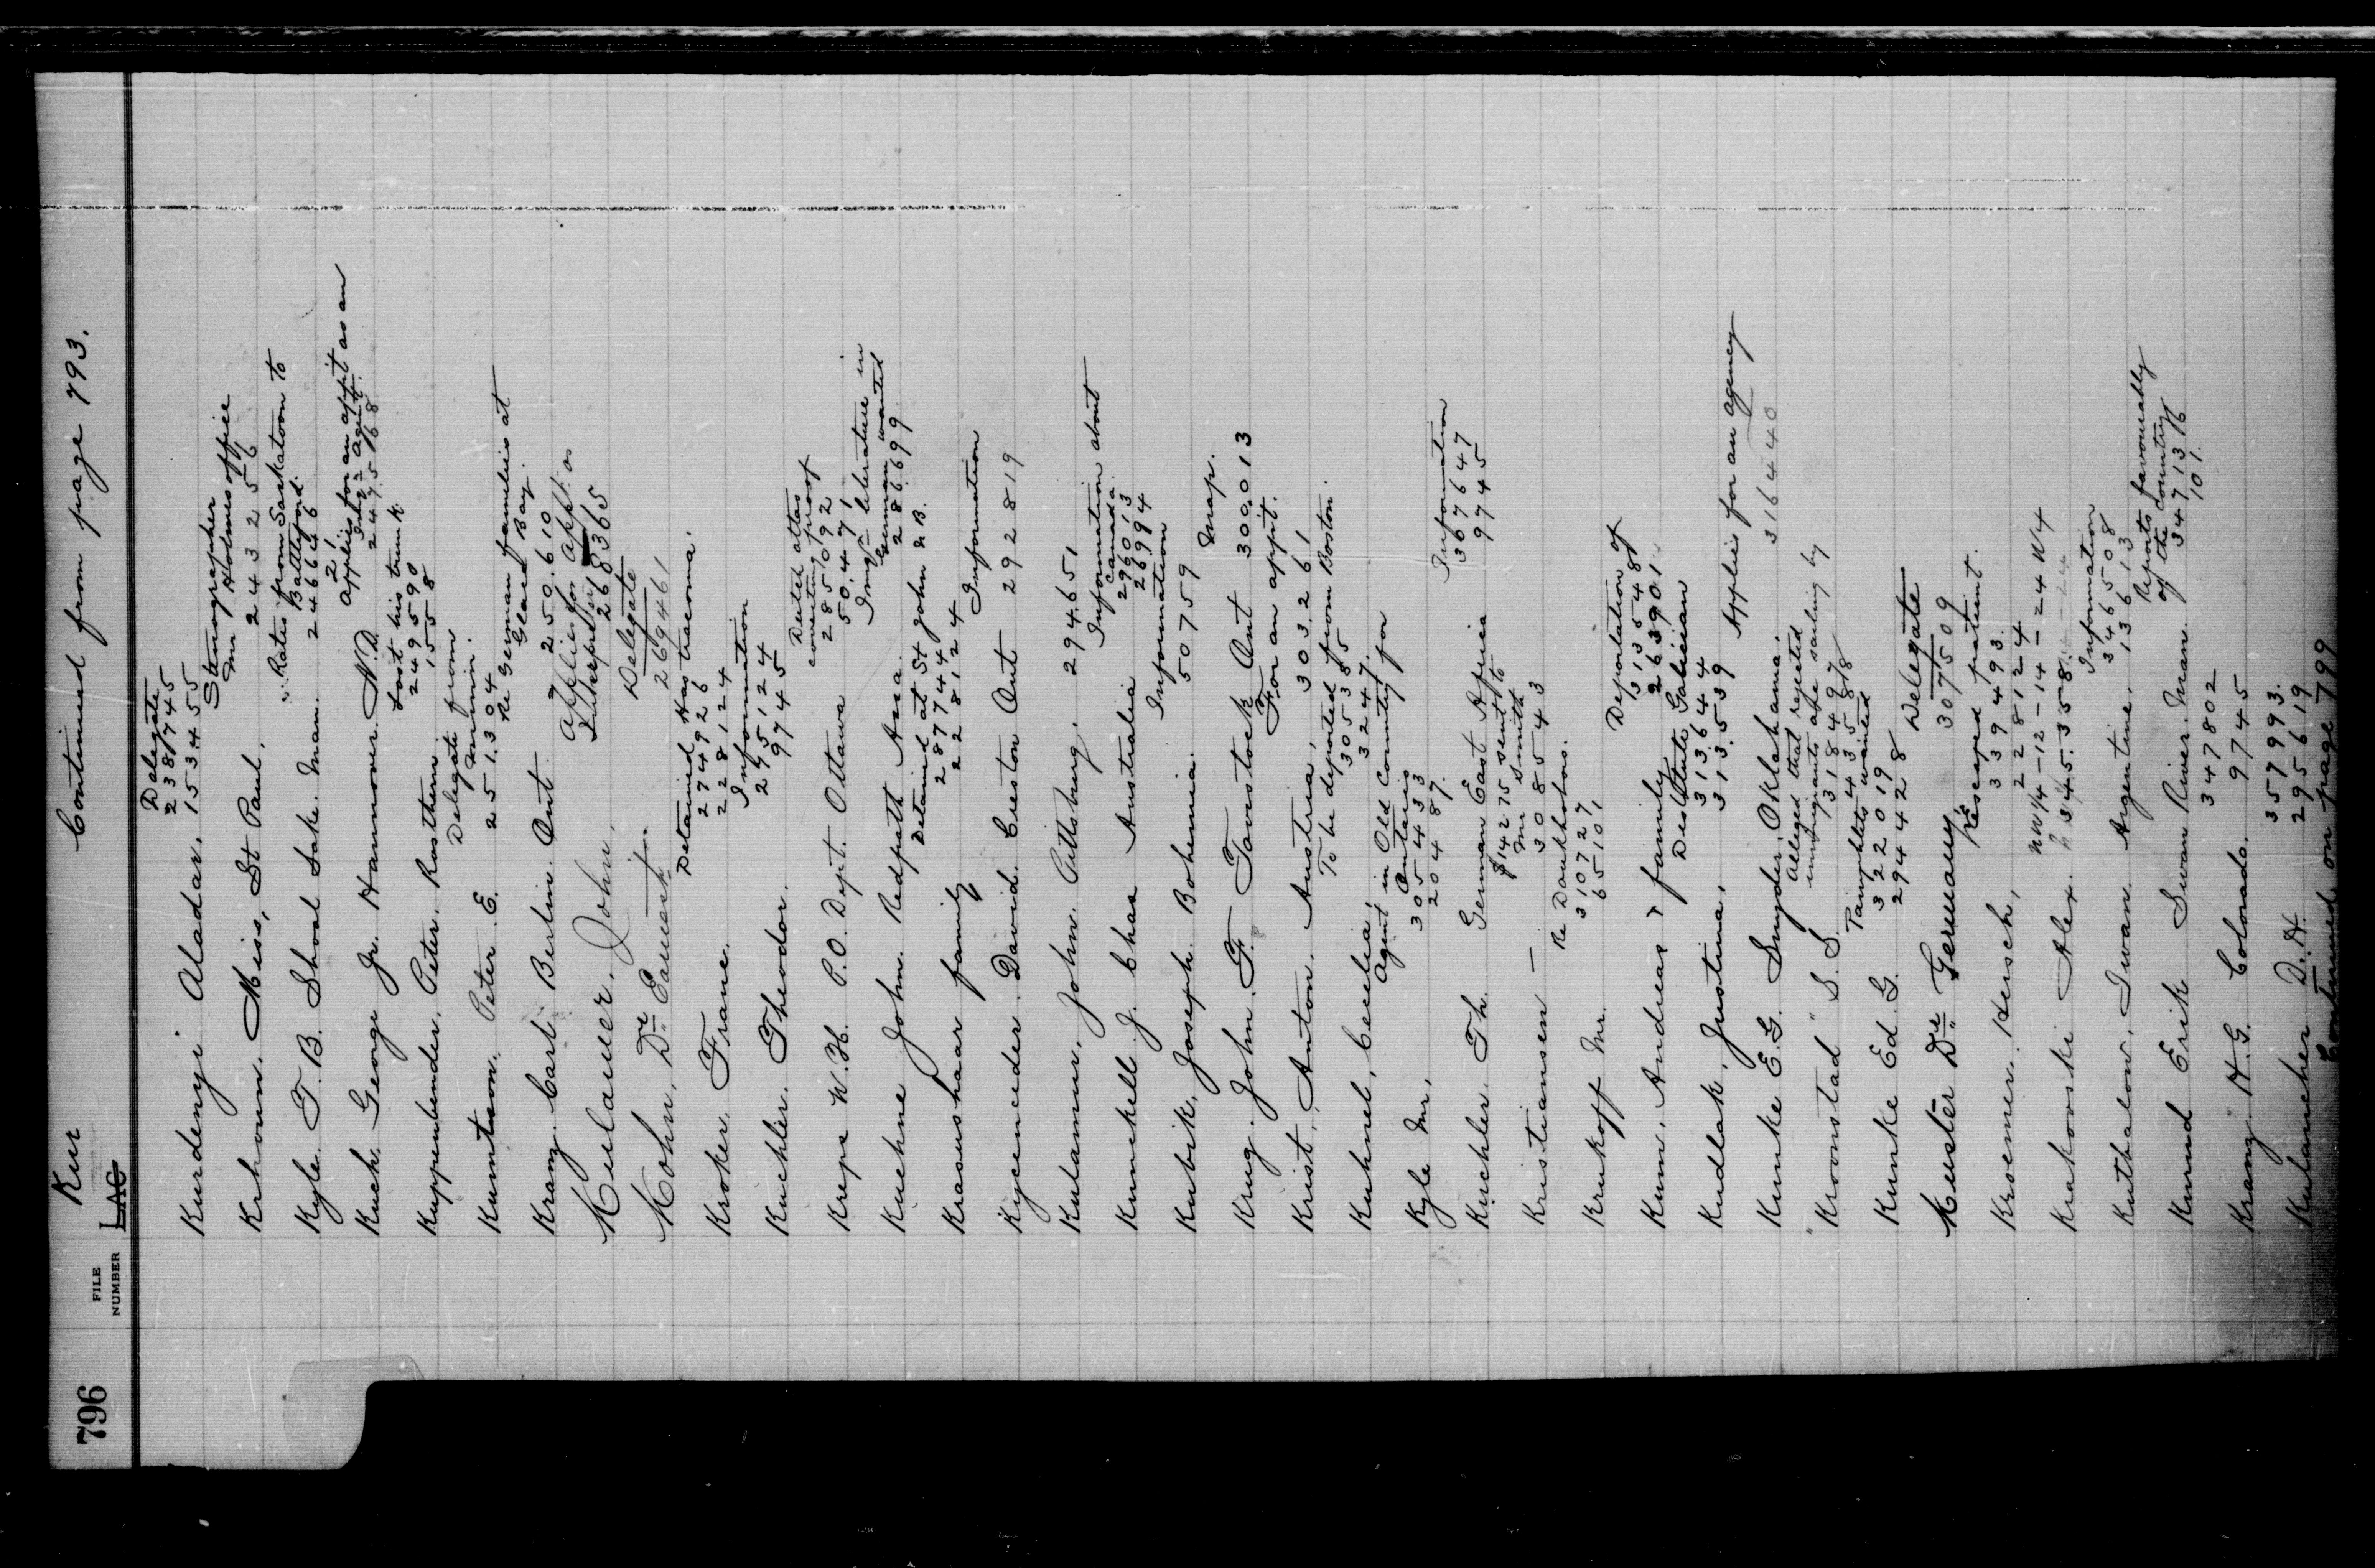 796
FILE NUMBER
LAC
Kur
Continued from page 793.
Delegate
238745
Kurdenyi Aladar. 153455
Stenographer
Mr Holmes office
Krhoun. Miss, St Paul. 243256
Rates from Saskatoon to
Battleford.
Kyle. T. B. Shoal Lake. Man. 246646
Applies for an appt as an
Agent
Kuch. George Jr. Hannover. N.D. 247568
Lost his trunk
249590
Kuppenbender, Peter. Rosthern 1558
Delegate from
Kumtson. Peter E. 251304
Re German families at
Gland Bay.
Kranz. Carl Berlin Ont 250610
Applies for appt. as
Interpreter
Kulauer, John, 268365
Delegate
Kohn, Dr. Earnest. 269461
Detained Has tracoma.
274926
Kroker Franc. 228124
Information
295124
Kuchler. Theodor. 9745
Dutch atlas
covering proof
285092
Kreps W. H. P.O. Dept. Ottawa 50.471
Imgn literature in
German wanted
Kuehne John. Redpath Assa. 286699
Detained at St John N.B.
287744
Krasushaar family 228124
Information
Kycenceder. David. Creston Ont 292819
Kulamur, John. Pittsburg, 294651
Information about
Canada.
296013
Kumskell J. Chas Australia 26994
Information
Kubik, Joseph. Bohemia. 50759
Map.
Krug. John. F. Tavistock Ont 300.013
For an appit.
Krist, Anton. Austria, 303.261
To be deported from Boston.
305385
Kuhnel, Cecelia, 32447.
Agent in Old Country for
Ontario
305433
Kyle Mr. 20487.
Information
367647
Kirchler Th. German East Africa 9745
$14275 sent to
Mr Smith
Kristiansen — 308543
Re Doukhobors.
310727
Krukoff Mr. 65101
Deportation of
313548
Kum, Andreas & family 263901
Destitute Galician
313644
Kudlak, Justina, 313.539
Applies for an agency
Kumke E. G. Snyder, Oklahama. 316440
Alleged that rejected
immigrants are sailing by
318497
"Kroonstad" S. S. 43588
Pamphlets wanted
322019
Kunke Ed. G. 294428
Delegate
Kuster Dr. Germany 307509
Re Escaped patient.
339493
Kroemer. Hersch, 228124
NW 1/4 - 12 - 14 - 24 W 4
Krakowski Alex. 345.358.
Information
346508
Kuthalow, Iwan Argentine, 13613
Reports favourably
of the country
347136
Knud Erik Swan River. Man. 101.
347802
Kranz H. G. Colorado. 9745
357993.
Kulancher D. H. 295619
Continued on page 799